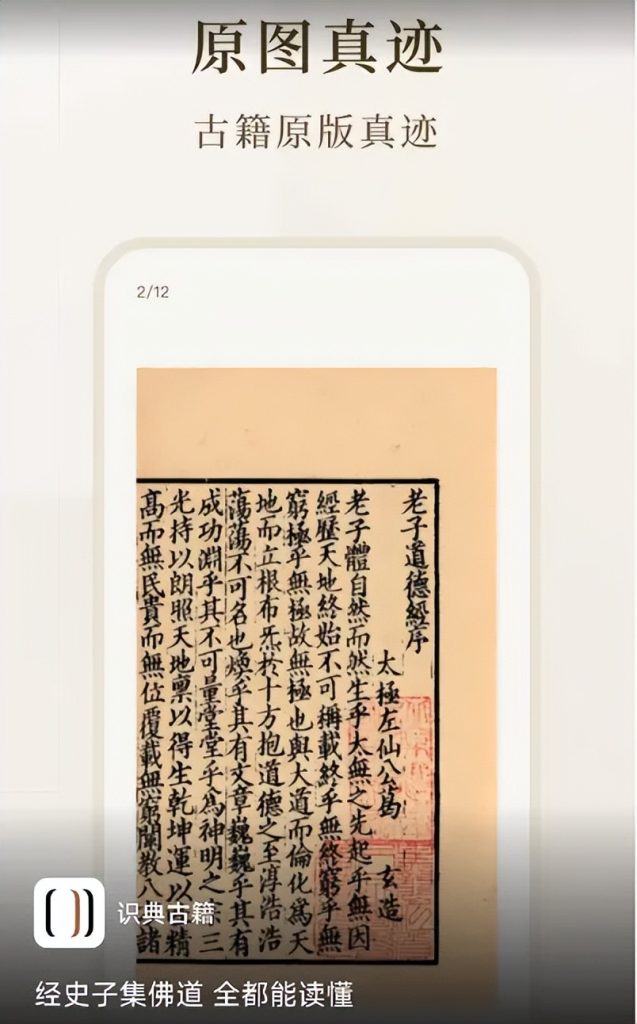 原图真迹
古籍原版真迹
2/12
老子道德經序
太極左仙公葛　玄造
老子體自然而然生乎太無之先起乎無因
經歷天地終始不可稱載終乎無終窮乎無
窮極乎無極故無極也與大道而倫化為天
地而立根布炁扵十方抱道德之至淳浩浩
蕩蕩不可名也煥乎其有文章巍巍乎其有
成功淵乎其不可量堂堂乎為神明之 三
光持以朗照天地稟以得生乾坤運以 精
高而無民貴而無位覆載無窮闡教八 諸
识典古籍
经史子集佛道 全都能读懂